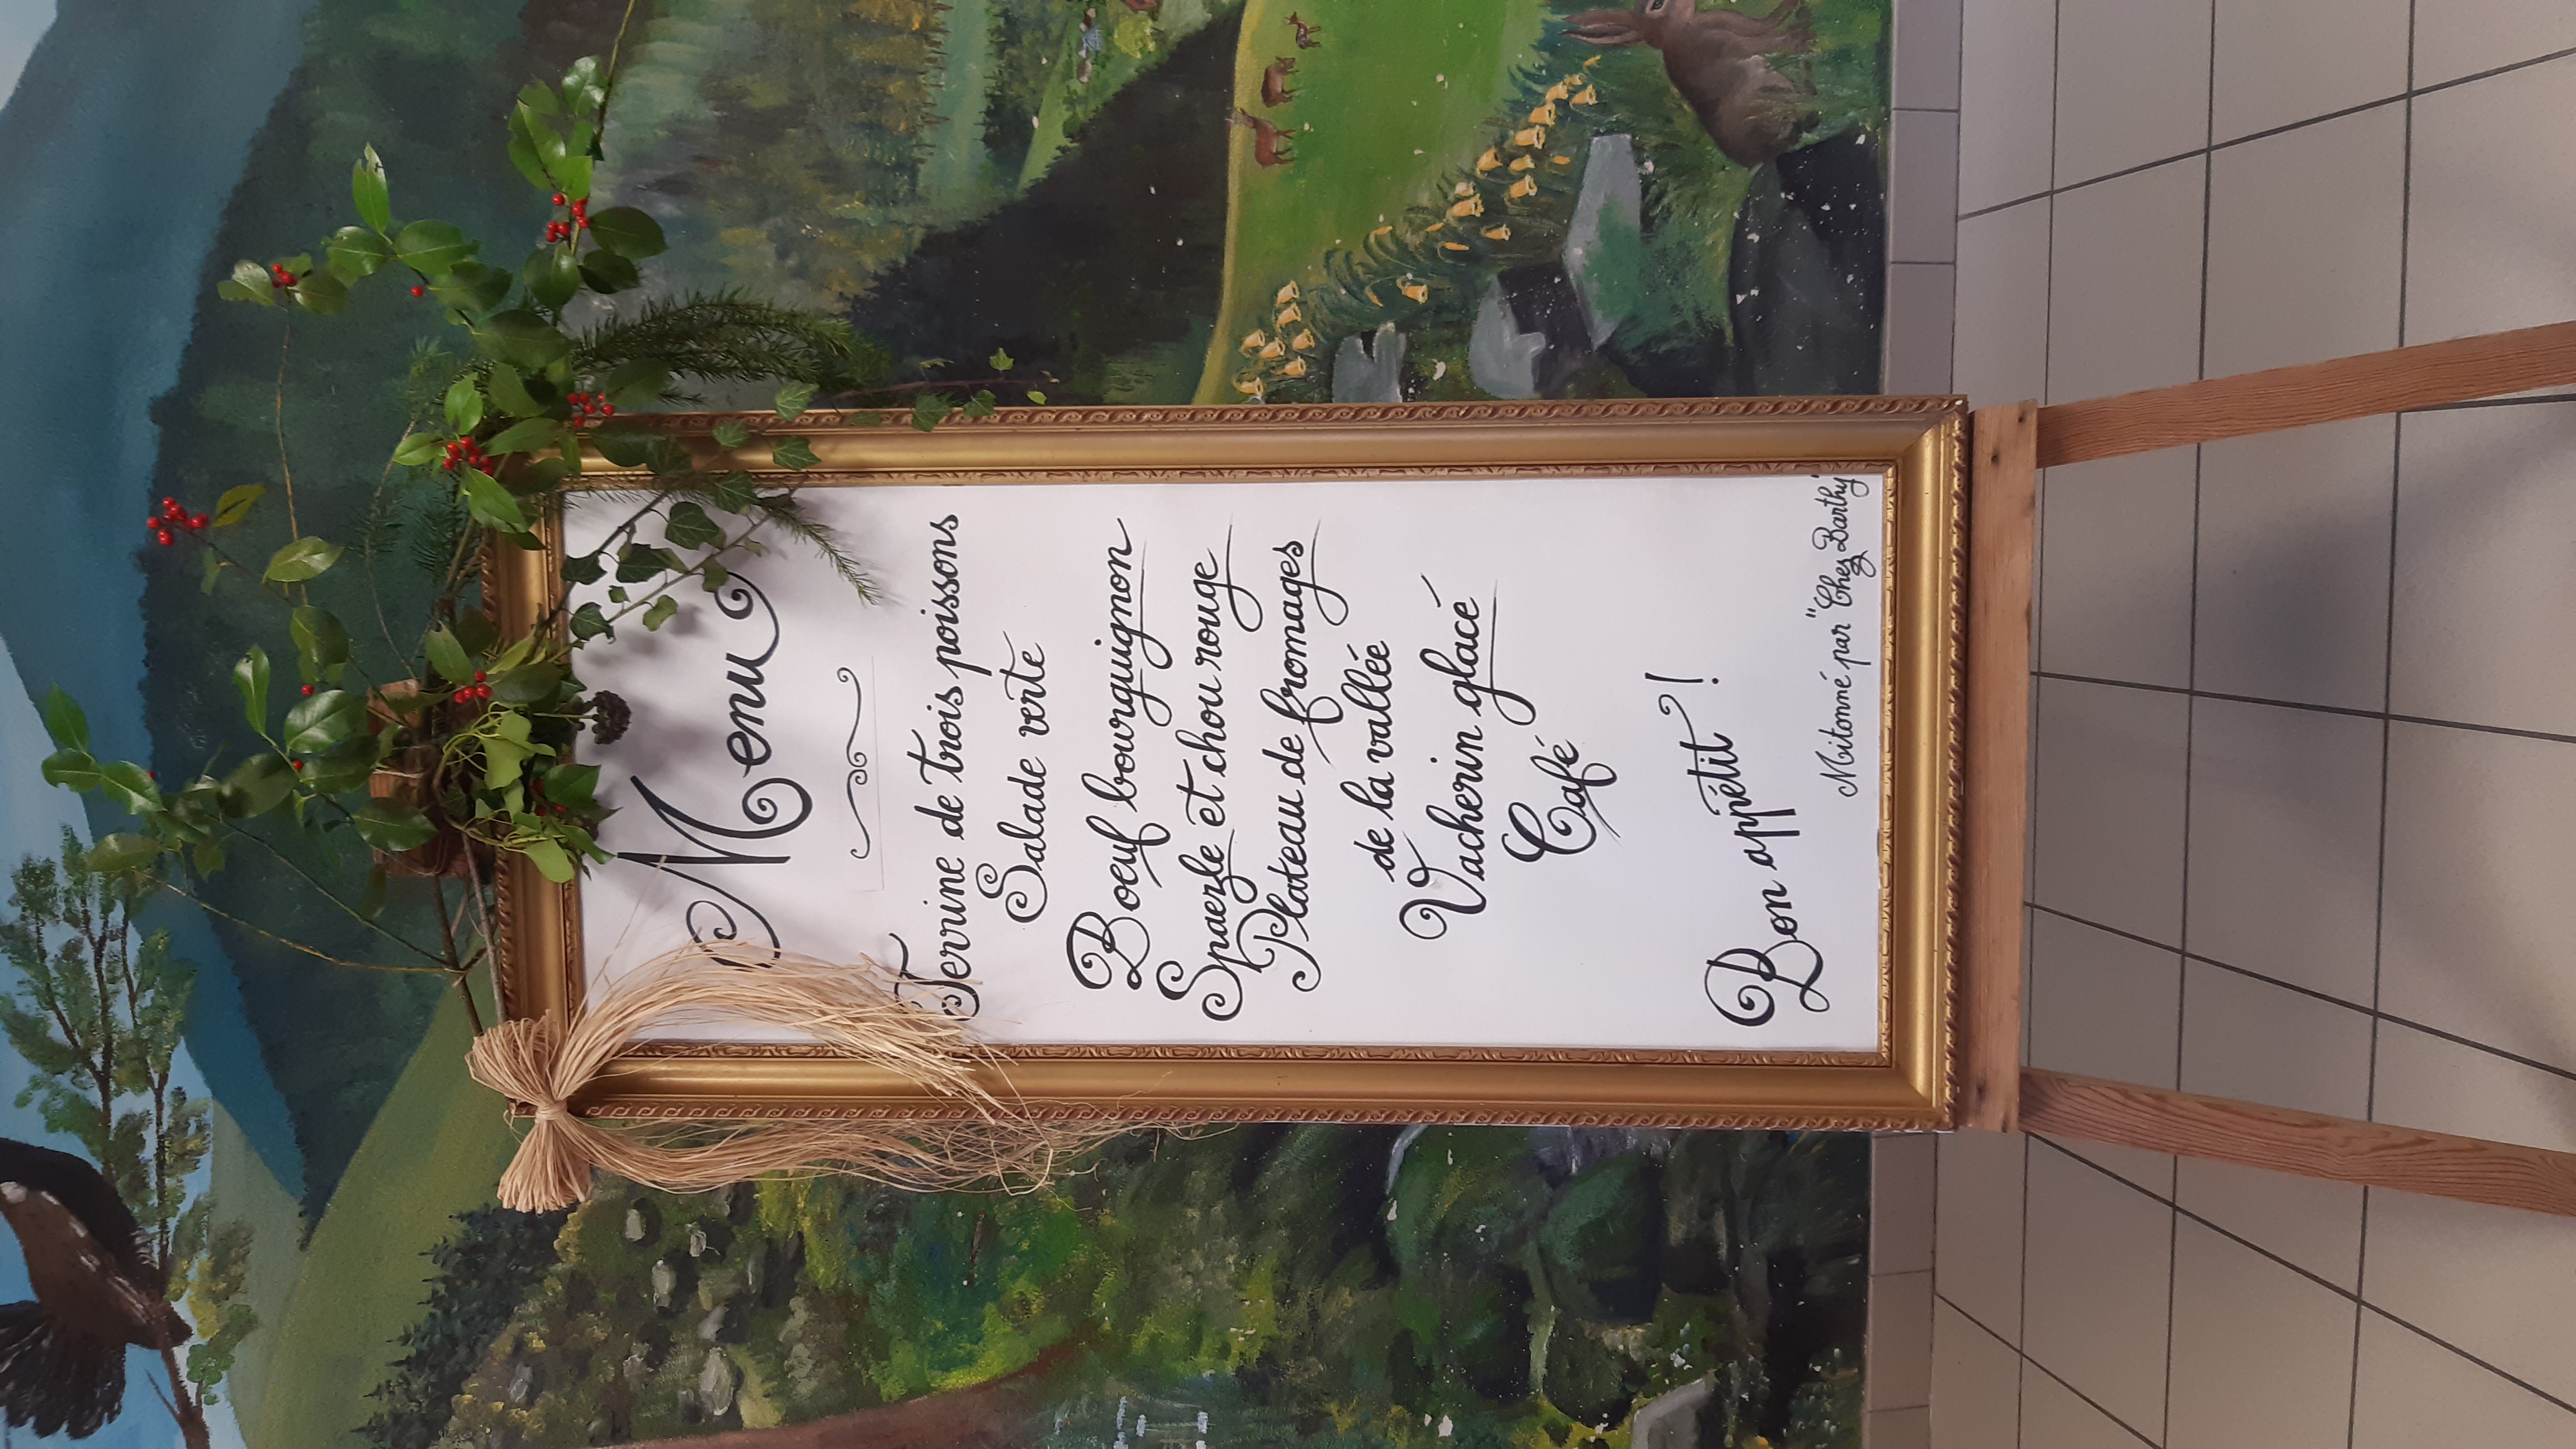 Menu
Terrine de trois poissons
Salade verte
Boeuf bourguignon
Spaezle et chou rouge
Plateau de fromages
de la vallée
Vacherin glacé
Café
Bon appétit !
Mitonné par "Chez Barthy"